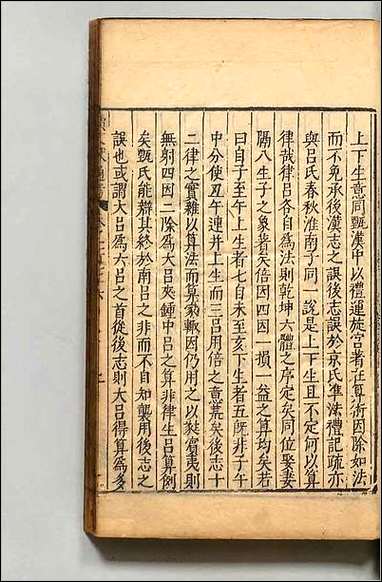 上下生意同甄漢中以禮運旋宮著在筭術因除如法
而不免承後漢志之誤後志誤於京氏隼法禮記疏亦
與呂氏春秋淮南子同一說是上下生且不定何以算
律哉律呂各自爲法則乾坤六體之序定矣同位娶妻
隔八生子之象著矣倍因四因一損一益之算均矣若
曰自子至午上生者七自未至亥下生者五旣非子午
中分使丑午連并上生而三呂用倍之意荒矣後志十
二律之實雖以算法而蕤賓輙因仍用之以㽔賓夷則
無射四因二除爲大呂夾鍾中呂之算非律生呂算例
矣甄氏能辯其終於南呂之非而不自知襲用後志之
誤也或謂大呂爲六呂之首從後志則大呂得算爲多